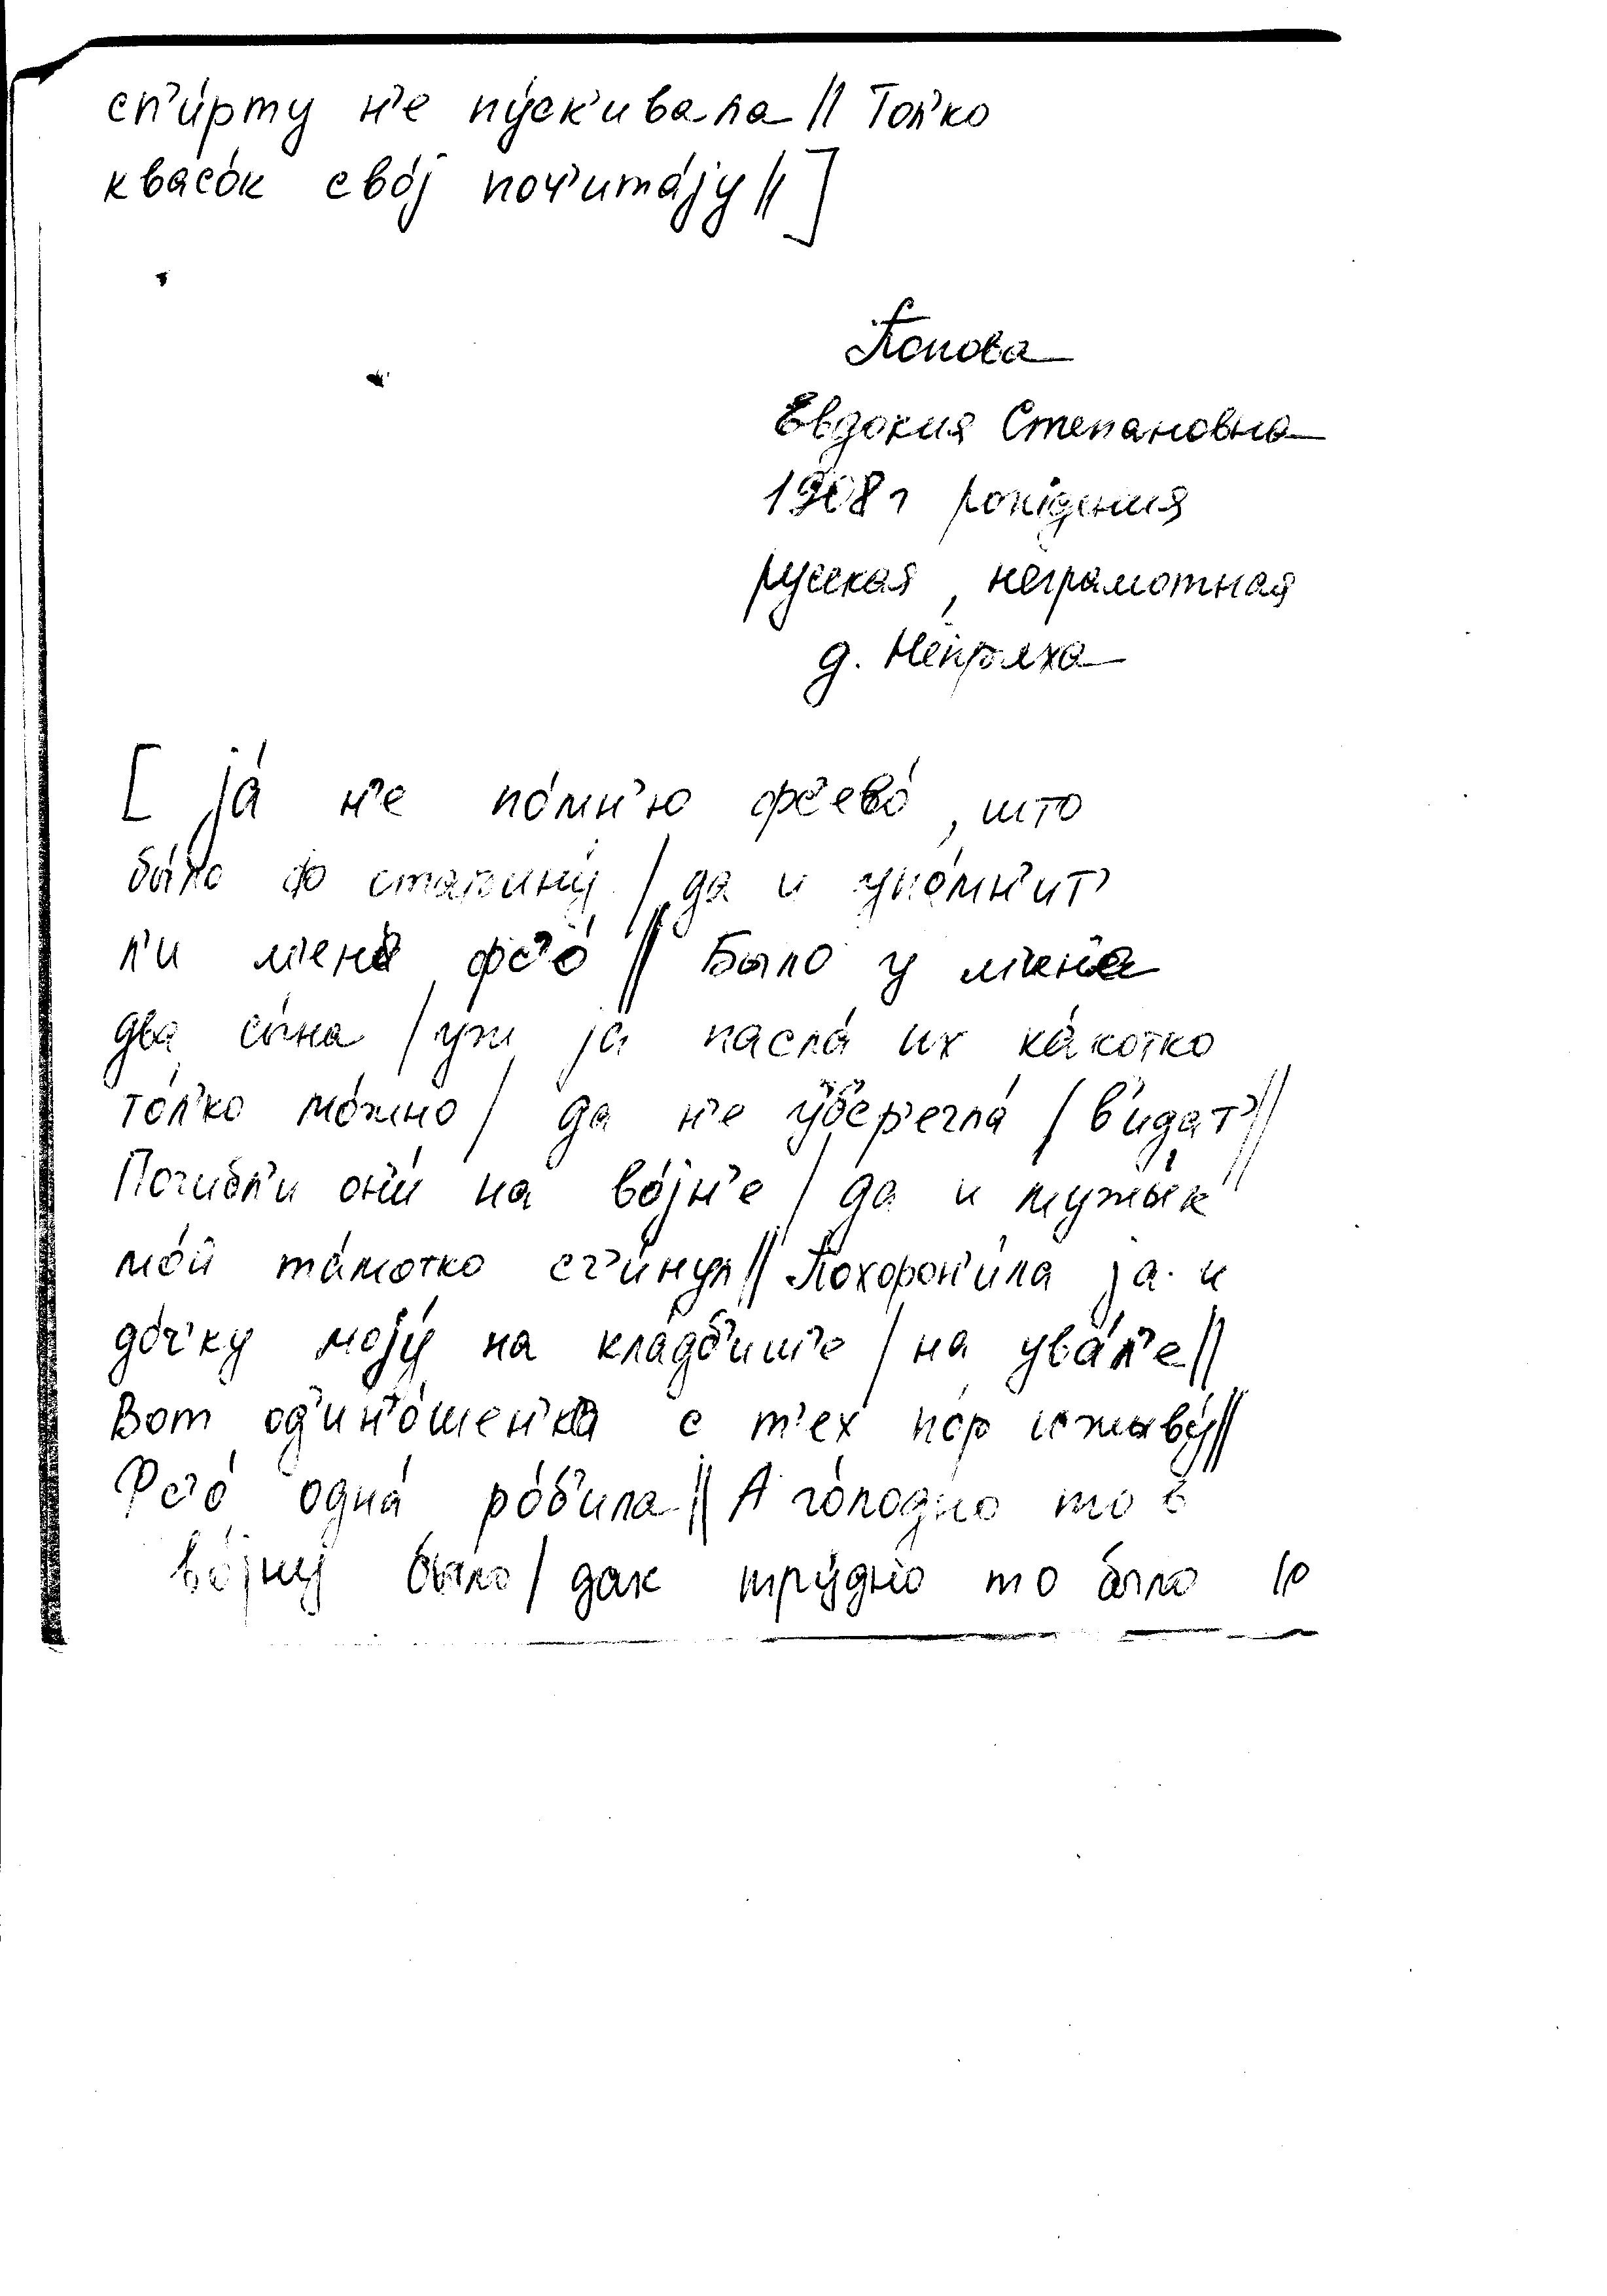 сп'и́рту н'е пу́ск'ивала // Тол'ко
квасо́к сво́j поч'ита́jу // ]
Попова
Евдокия Степановна
1908 г рождения
русская, неграмотная
д. Непряха
[ jа́ н'е по́мн'ю фс'ево́, што
бы́ло ф старину́ / да и упо́мн'ит'
л'и м'ен'а фс'о́ // Было у м'ен'а
два сы́на / уж jа́ пасла́ их ка́котко
то́л'ко мо́жно / да н'е уб'ер'егла́ / в'идат' //
Погибл'и он'и́ на во́jн'е / да и мужы́к
мо́й та́мотко сг'и́нул // Похорон'и́ла jа и
до́ч'ку моjу́ на кла́дб'иш'е / на ува́л'е //
Вот од'ин'о́шен'ка с т'ех по́р и жыву́ //
Фс'о́ одна́ ро́б'ила // А го́лодно то в
во́jну было / дак тру́дно то было